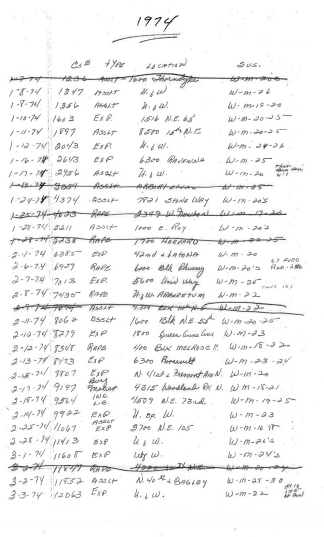 1974
CS# TYPE LOCATION SUS.
1-8-74 1236 ASSLT 1600 W-M-20'S
1-8-74 1347 ASSLT U. of W W-M-26
1-9-74 1356 ASSLT U. of W. W-M-19-20
1-10-74 1603 EXP. 1516 N.E. 65 W-M-20-25
1-11-74 1897 ASSLT 8500 15th N.E. W-M-20-25
1-12-74 2043 EXP U. of W. W-M-24-26
1-16-74 2643 EXP 6300 RAVENNA W-M-25
1-17-74 2956 ASSLT U. of W
ASSLT ARBORETUM W-M-25
1-24-74 4374 ASSLT 7821 STONE WAY W-M-20'S
1-25-74 RAPE W-M-17-20
1-28-74 5211 ASSLT 1000 E. ROY W-M-20'S
1-28-74 5238 RAPE 1700 HARVARD W-M-22-25
2-1-74 6385 EXP 42nd & LATONA W-M-20
2-6-74 6909 RAPE 6000 Blk W-M-25 67 FORD
2-7-74 7013 EXP. 5600 Univ Way W-M-25
2-8-74 7435 RAPE U of W ARBORETUM W-M-22
2-11-74 8062 ASSLT 1600 Blk N.E. 55th W-M-20-25
2-12-74 8279 EXP 1800 W-M-23
2-12-74 8348 RAPE 400 Blk MELROSE E. W-M-18-22
2-13-74 8473 EXP 6300 W-M-23-24
2-15-74 9807 EXP N 41st & Fremont Ave N. W-M-20
2-17-74 9197 Burg Molest 4315 Woodland Pk N. W-M-18-21
2-18-74 9364 IND. LIB. 4509 N.E. 73rd W-M-19-25
2-19-74 9922 EXP U. of W. W-M-23
2-25-74 11067 ASSLT EXP 3700 N.E. 105 W-M-16-18
2-28-74 11413 EXP U. of W. W-M-20'S
3-1-74 11608 EXP U of W. W-M-24'S
3-2-74 11847 RAPE
3-2-74 11852 ASSLT N. 40th & BAGLEY W-M-25-30
3-3-74 12063 EXP U. of W. W-M-22